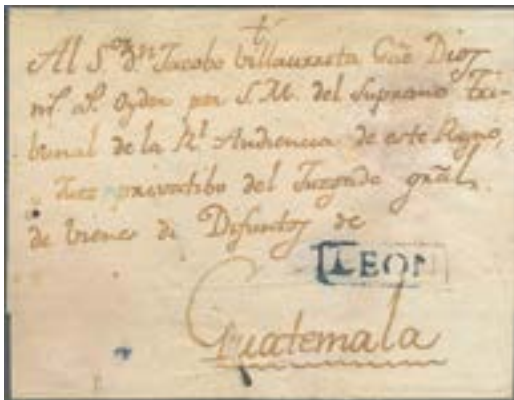 Al Sor Dn Jacobo Villaurrutia Gūe Dios
ms as Oydor por S.M. del Supremo Tri-
bunal de la Rl Audiencia de este Reyno,
y Juez privatibo del Juzgado gral,
de vienes de Difuntos de
LEON
Guatemala